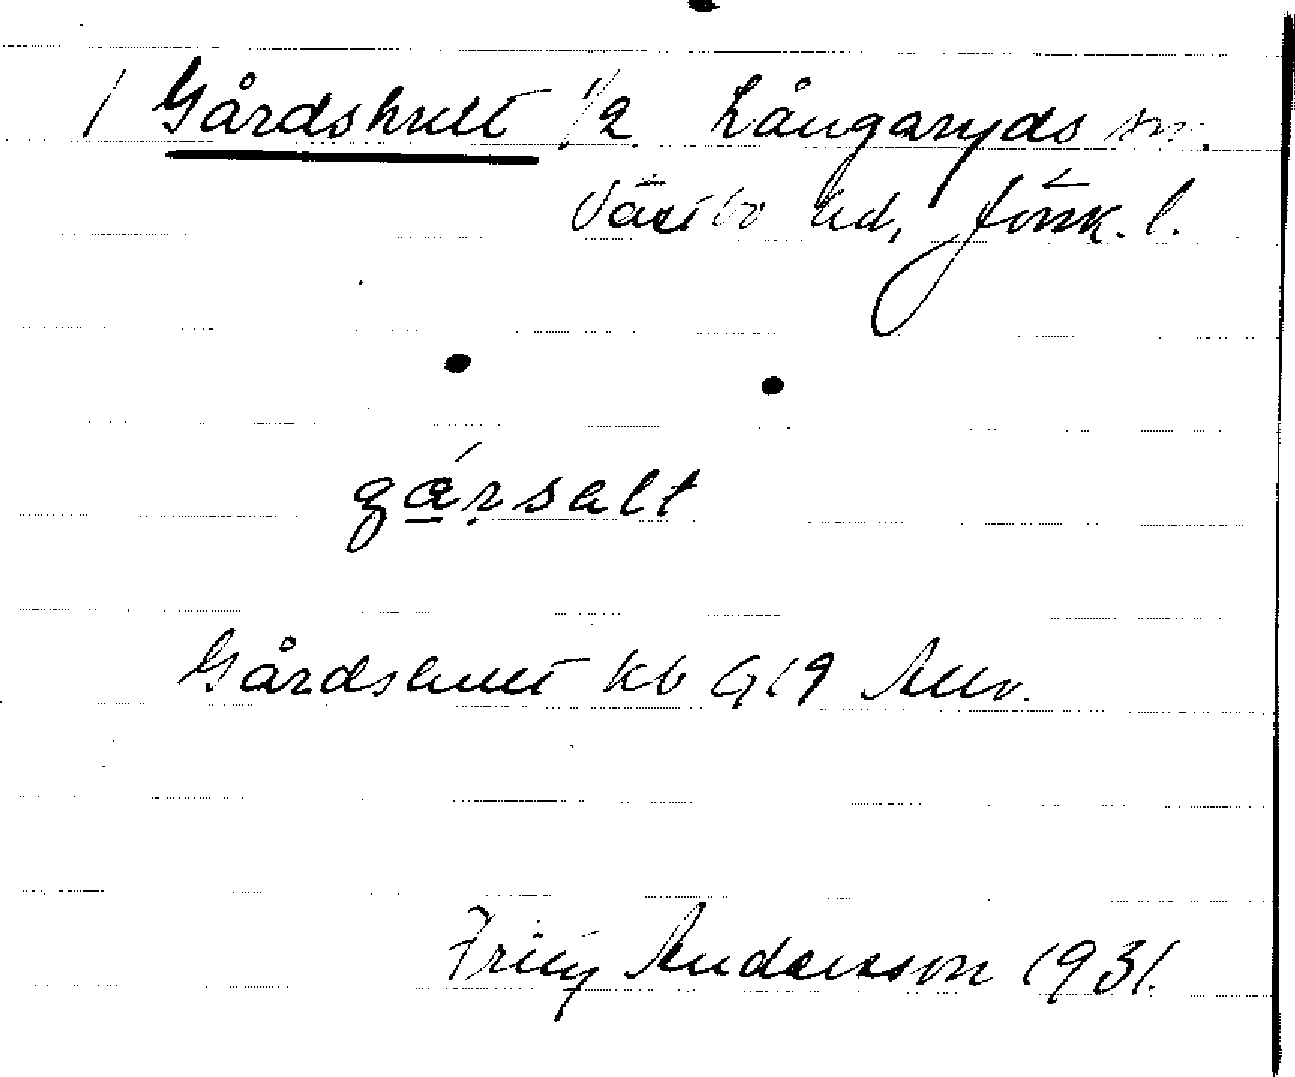 / Gårdshult 1/2 Långaryds sn.
Västbo hd, Jönk. l.
gá̱ṛsalt
Gårdshult kb Allv.
Andersson 1931.